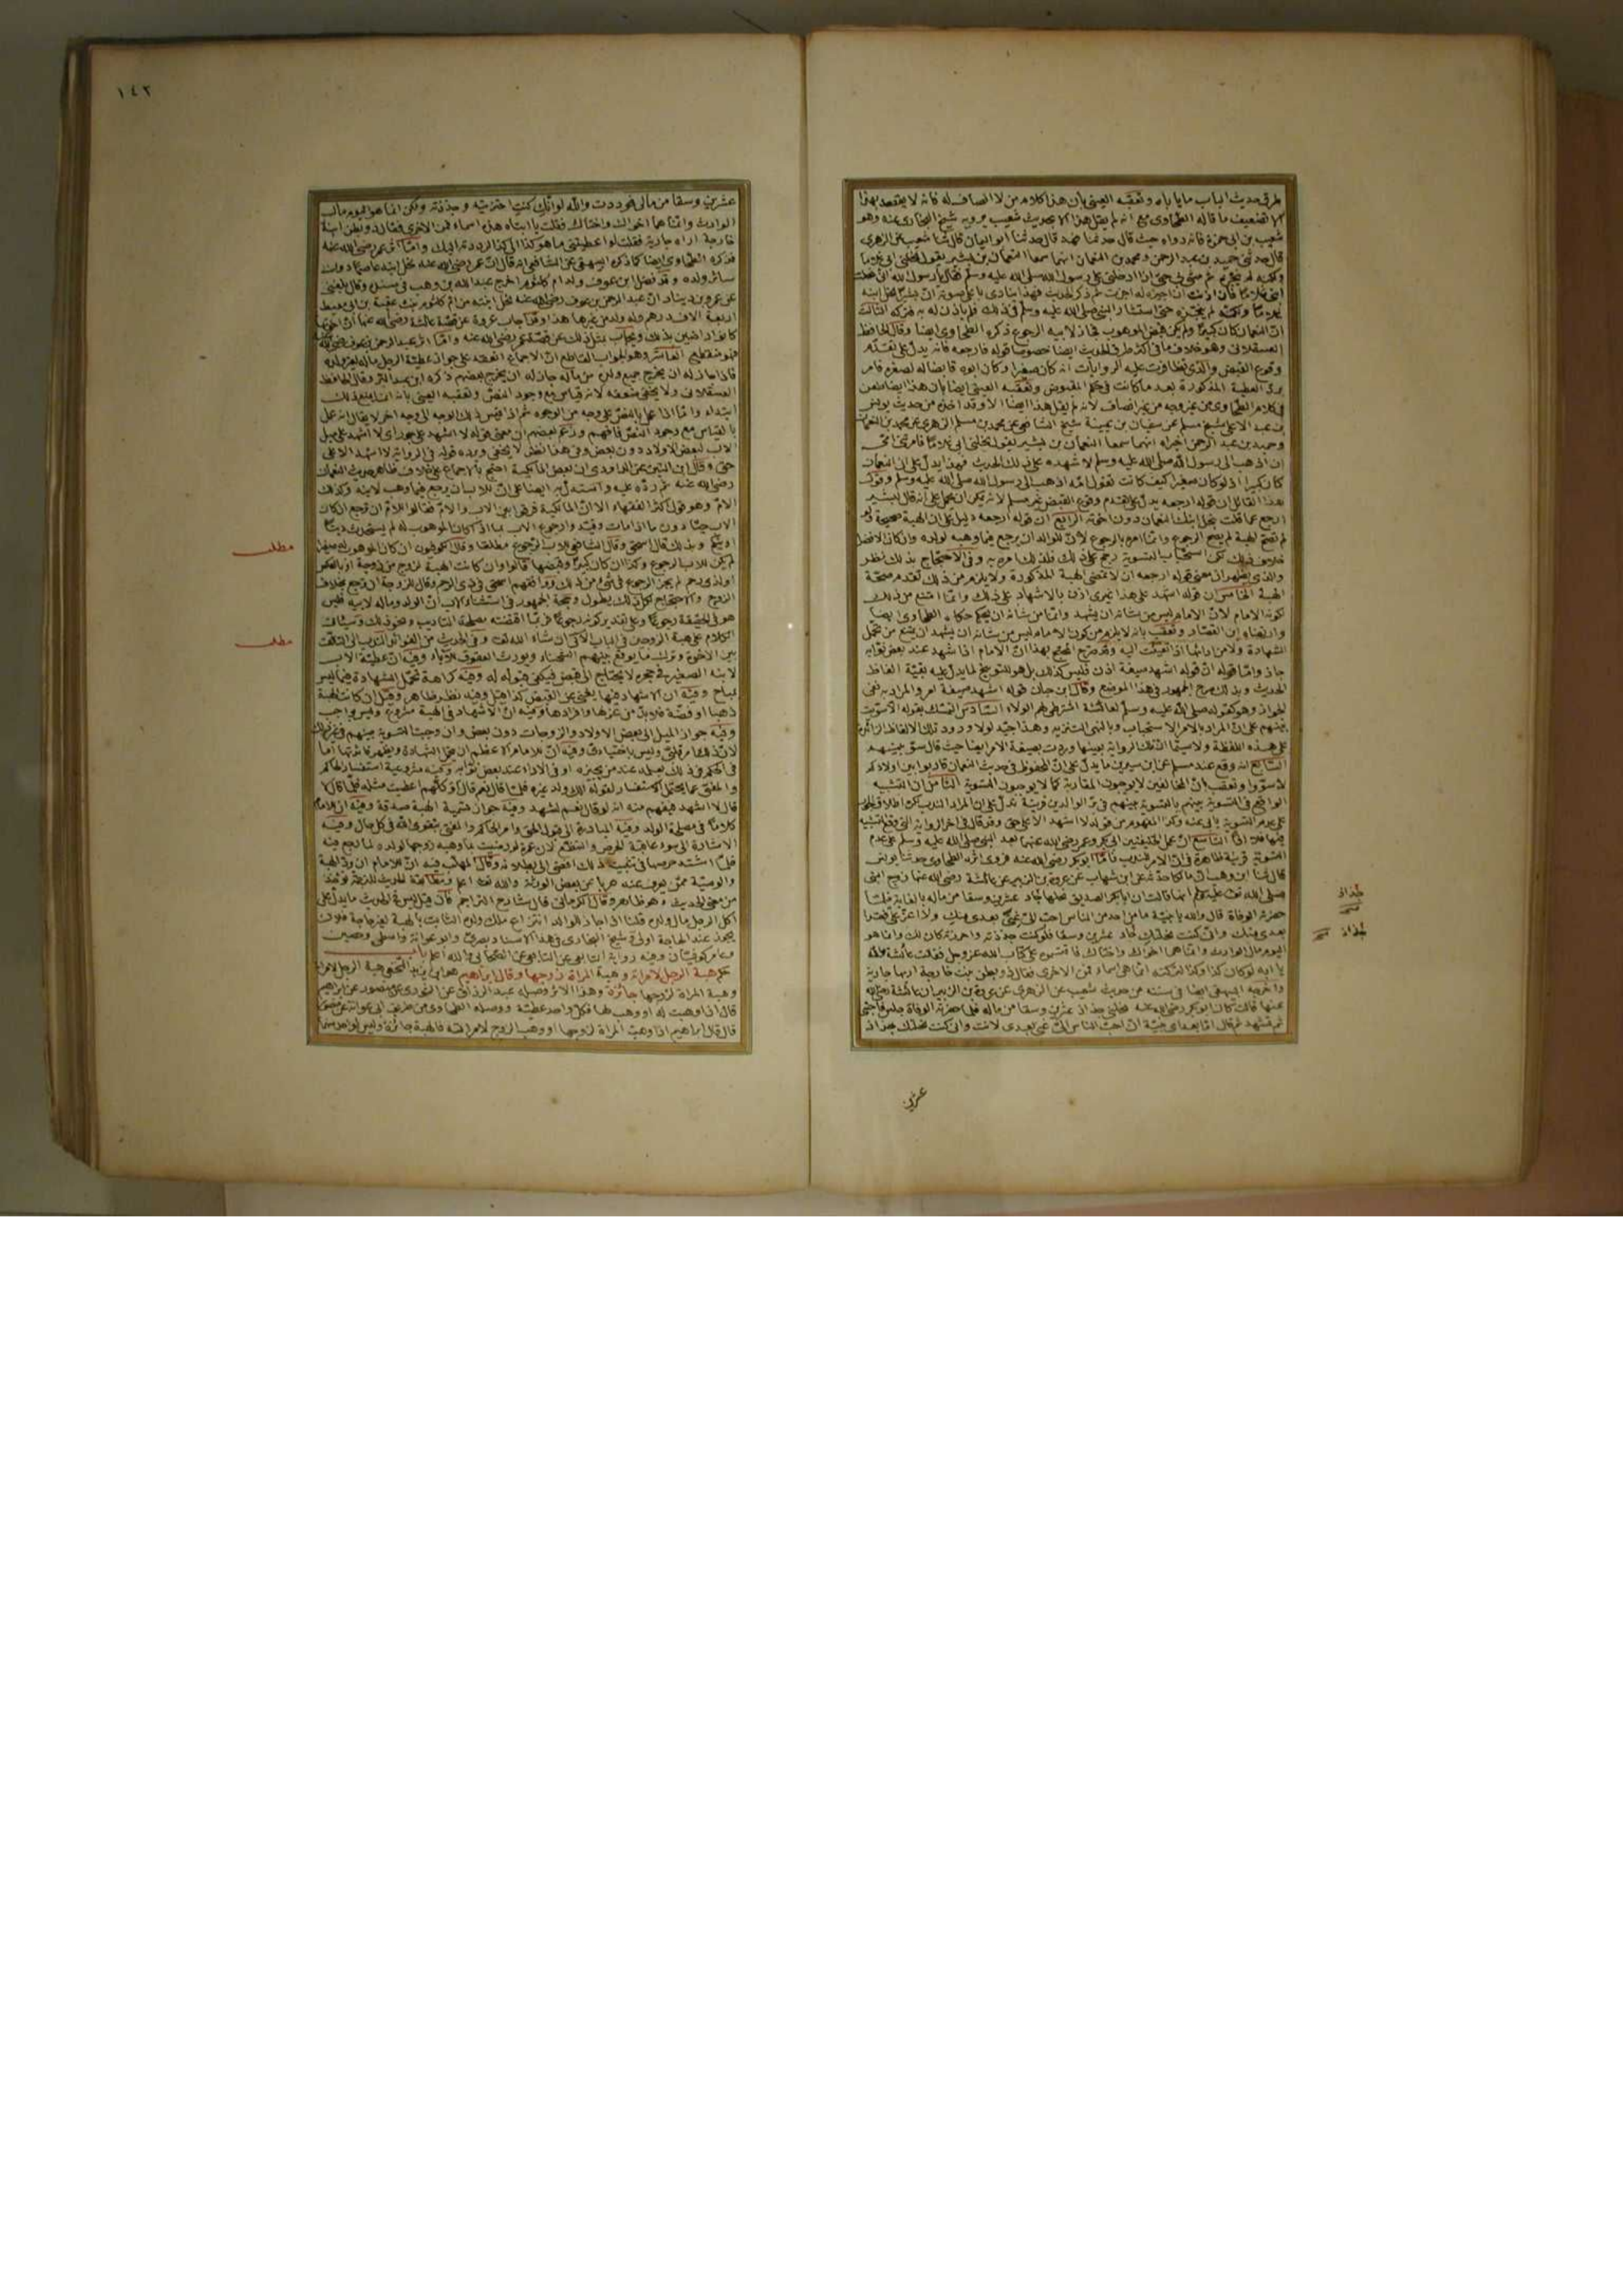 طرق حديث الباب ما يأباه وتعقبه العينى بأن هذا كلام من لا انصاف له فانه لا يقصد بهذا
الا تضعيف ما قاله الطحاوى مع انه لم يقل هذا الا بحديث شعيب يرويه شيخ البخارى عنه وهو
شعيب بن ابى حمزة فانه رواه حيث قال حدثنا فهد قال حدثنا ابو اليمان قال ثنا شعيب عن الزهرى
قال حدثنى حميد بن عبد الرحمن ومحمد بن النعمان انهما سمعا النعمان بن بشير يقول نحلنى ابى غلاما
ابنى غلاما فان اذنت ان اجيزه له اجزت ثم ذكر الحديث فهذا ينادى باعلى صوته ان بشيرا نحل ابنه
غلاما ولكنه لم ينجزه حتى استشار النبى صلى الله عليه وسلم فى ذلك فلم يأذن له به فتركه الثالث
ان النعمان كان كبيرا ولم يكن قبض الموهوب فجاز لابيه الرجوع ذكره الطحاوى ايضا وقال الحافظ
العسقلانى وهو خلاف ما فى اكثر طرق الحديث ايضا خصوصا قوله فارجعه فانه يدل على تقدم
وقوع القبض والذى تظافرت عليه الروايات انه كان صغيرا وكان ابوه قابضا له لصغره فامر
برد العطية المذكورة بعد ما كانت فى حكم المقبوض وتعقبه العينى ايضا بأن هذا ايضا طعن
فى كلام الطحاوى من غير وجه من غير انصاف لانه لم يقل هذا ايضا الا وقد اخذه من حديث يونس
بن عبد الاعلى شيخ مسلم عن سفيان بن عيينة شيخ الشافعى عن محمد بن مسلم الزهرى عن محمد بن النعمان
وحميد بن عبد الرحمن اخبراه انهما سمعا النعمان بن بشير يقول نحلنى ابى غلاما فامرتنى امى
ان اذهب الى رسول الله صلى الله عليه وسلم لاشهده على ذلك الحديث فهذا يدل على ان النعمان
كان كبيرا اذ لو كان صغيرا كيف كانت تقول امه اذهب الى رسول الله صلى الله عليه وسلم وقول
هذا القائل ان قوله ارجعه يدل على تقدم وقوع القبض غير مسلم لانه يمكن ان يحمل على انه قال لبشير
ارجع عما قلت بنحل ابنك النعمان دون اخوته الرابع ان قوله ارجعه دليل على ان الهبة صحيحة ولو
لم تصح الهبة لم يصح الرجوع وانما امره بالرجوع لان للوالد ان يرجع فيما وهبه لولده وان كان الافضل
خلاف ذلك لكن استحباب التسوية رجح على ذلك فلذلك امره به وفى الاحتجاج بذلك نظر
والذى يظهر ان معنى قوله ارجعه ان لا تمضى الهبة المذكورة ولا يلزم من ذلك تقدم صحة
الهبة الخامس ان قوله اشهد على هذا غيرى اذن بالاشهاد على ذلك وانما امتنع من ذلك
لكونه الامام لان الامام ليس من شانه ان يشهد وانما من شانه ان يحكم حكاه الطحاوى ايضا
وارتضاه ابن القصار وتعقب بانه لا يلزم من كون الامام ليس من شانه ان يشهد ان يمتنع من تحمل
الشهادة ولا من ادائها اذا تعينت اليه وقد صرح المحتج بهذا ان الامام اذا شهد عند بعض نوابه
جاز واما قوله ان قوله اشهد صيغة اذن فليس كذلك بل هو للتوبيخ لما يدل عليه بقية الفاظ
الحديث وبذلك صرح الجمهور فى هذا الموضع وقال ابن حبان قوله اشهد صيغة امر والمراد به نفى
الجواز وهو كقوله صلى الله عليه وسلم لعائشة اشترطى لهم الولاء السادس التمسك بقوله الا سويت
بينهم على ان المراد بالامر الاستحباب وبالنهى التنزيه وهذا جيد لولا ورود تلك الالفاظ الزائدة
على هذه اللفظة ولا سيما ان تلك الرواية بعينها وردت بصيغة الامر ايضا حيث قال سو بينهم
السابع انه وقع عند مسلم عن ابن سيرين ما يدل على ان المحفوظ فى حديث النعمان قاربوا بين اولادكم
لا سووا وتعقب بان المخالفين لا يوجبون المقاربة كما لا يوجبون التسوية الثامن ان التشبيه
الواقع فى التسوية بينهم بالتسوية بينهم فى بر الوالدين قرينة تدل على ان المراد الندب لكن اطلاق الجور
على عدم التسوية يأبى عنه وكذا المفهوم من قوله لا اشهد الا على حق وقد قال فى اخر الرواية التى وقع التشبيه
فيها فلا اذا التاسع ان عمل الخليفتين ابى بكر وعمر رضى الله عنهما بعد النبى صلى الله عليه وسلم على عدم
التسوية قرينة ظاهرة فى ان الامر للندب فاما ابو بكر رضى الله عنه فروى اثره الطحاوى حدثنا يونس
قال ثنا ابن وهب ان مالكا حدثه عن ابن شهاب عن عروة بن الزبير عن عائشة رضى الله عنها زوج النبى
صلى الله تعالى عليه وسلم انها قالت ان ابا بكر الصديق نحلها جاد عشرين وسقا من ماله بالغابة فلما
حضرته الوفاة قال والله يا بنية ما من احد من الناس احب الى غنى بعدى منك ولا اعز على فقرا
بعدى منك وانى كنت نحلتك جاد عشرين وسقا فلو كنت جذذته واحرزته كان لك وانما هو
اليوم مال الوارث وانما هما اخواك واختاك فاقتسموه على كتاب الله عز وجل فقالت عائشة والله
يا ابه لو كان كذا وكذا لتركته انما هى اسماء فمن الاخرى فقال ذو بطن بنت خارجة اراها جارية
واخرجه البيهقى ايضا فى سننه من حديث شعيب عن الزهرى عن عروة بن الزبير ان عائشة رضى الله
عنها قالت كان ابو بكر رضى الله عنه نحلنى جذاذ عشرين وسقا من ماله فلما حضرته الوفاة جلس فاحتبى
ثم تشهد ثم قال اما بعد اى بنية ان احب الناس الى غنى بعدى لانت وانى كنت نحلتك جذاذ
جذاذ
صح
جذاذ صح
عشرين
١٤٢
عشرين وسقا من مالى فوددت والله لو انك كنت احتزتيه وجذذته ولكن انما هو اليوم مال
الوارث وانما هما اخواك واختاك فقلت يا ابتاه هذه اسماء فمن الاخرى فقال ذو بطن ابنة
خارجة اراه جارية فقلت لو اعطيتنى ما هو كذا الى كذا لرددته اليك واما اثر عمر رضى الله عنه
فذكره الطحاوى ايضا كما ذكره البيهقى عن الشافعى انه قال ان عمر رضى الله عنه نحل ابنه عاصما دون
سائر ولده وقد فضل ابن عوف ولد ام كلثوم اخرج عبد الله بن وهب فى مسنده وقال بلغنى
عن عمرو بن دينار ان عبد الرحمن بن عوف رضى الله عنه نحل ابنته من ام كلثوم بنت عقبة بن ابى معيط
اربعة الاف درهم وله ولد من غيرها هذا وقد اجاب عروة عن قصة عائشة رضى الله عنها ان اخوتها
كانوا راضين بذلك ويجاب بمثل ذلك عن قصة عمر رضى الله عنه واما اثر عبد الرحمن بن عوف رضى الله عنه
فهو منقطع العاشر وهو الجواب القاطع ان الاجماع انعقد على جواز عطية الرجل ماله لغير ولده
فاذا جاز له ان يخرج جميع ولده من ماله جاز له ان يخرج بعضهم ذكره ابن عبد البر وقال الحافظ
العسقلانى ولا يخفى ضعفه لانه قياس مع وجود النص وتعقبه العينى بانه انما يمنع ذلك
ابتداء واما اذا عمل بالنص على وجه من الوجوه ثم اذا قيس ذلك الوجه الى وجه اخر لا يقال انه عمل
بالقياس مع وجود النص فافهم وزعم بعضهم ان معنى قوله لا اشهد على جور اى لا اشهد على ميل
الاب لبعض الاولاد دون بعض وفى هذا نظر لا يخفى ويرده قوله فى الرواية لا اشهد الا على
حق وقال ابن التين عن الداودى ان بعض المالكية احتج بالاجماع على خلاف ظاهر حديث النعمان
رضى الله عنه ثم رده عليه واستدل به ايضا على ان للاب ان يرجع فيما وهب لابنه وكذلك
الام وهو قول اكثر الفقهاء الا ان المالكية فرقوا بين الاب والام فقالوا للام ان ترجع ان كان
الاب حيا دون ما اذا مات وقيدوا رجوع الاب بما اذا كان الابن الموهوب له لم يستحدث دينا
او ينكح وبذلك قال اسحق وقال الشافعى للاب الرجوع مطلقا وقال الكوفيون ان كان الموهوب له صغيرا
لم يكن للاب الرجوع وكذا ان كان كبيرا وقبضها قالوا وان كانت الهبة لزوج من زوجة او بالعكس
او لذى رحم لم يجز الرجوع فى شىء من ذلك ووافقهم اسحق فى ذى الرحم وقال للزوجة ان ترجع بخلاف
الزوج والاحتجاج لكل ذلك يطول وحجة الجمهور فى استثناء الاب ان الولد وماله لابيه فليس
هو فى الحقيقة رجوعا وعلى تقدير كونه رجوعا فربما اقتضته مصلحة التاديب ونحو ذلك وسيأتى
الكلام على هبة الزوجين فى الباب الاتى ان شاء الله تعالى وفى الحديث من الفوائد الندب الى التآلف
بين الاخوة وترك ما يوقع بينهم الشحناء ويورث العقوق للآباء وفيه ان عطية الاب
لابنه الصغير فى حجره لا يحتاج الى قبض فيكفى قبوله له وفيه كراهة تحمل الشهادة فيما ليس
بمباح وفيه ان الاشهاد فيها يغنى عن القبض كذا قيل وفيه نظر ظاهر وقيل ان كانت الهبة
ذهبا او فضة فلا بد من عزلها وافرازها وفيه ان الاشهاد فى الهبة مشروع وليس بواجب
وفيه جواز الميل الى بعض الاولاد والزوجات دون بعض وان وجبت التسوية بينهم فى غير ذلك
لان ذلك امر قلبى وليس باختيارى وفيه ان للامام الاعظم ان يتحمل الشهادة ويظهر فائدتها اما
فى الحكم فى ذلك بعلمه عند من يجيزه او فى الاداء عند بعض نوابه وفيه مشروعية استفسار الحاكم
والمفتى عما يحتمل الاستفسار لقوله الك ولد غيره فلما قال نعم قال أفكلهم اعطيت مثله فلما قال لا
قال لا اشهد فيفهم منه انه لو قال نعم لشهد وفيه جواز تسمية الهبة صدقة وفيه ان للامام
كلاما فى مصلحة الولد وفيه المبادرة الى قبول الحق وامر الحاكم والمفتى بتقوى الله فى كل حال وفيه
الاشارة الى سوء عاقبة الحرص والتنطع لان عمرة لو رضيت بما وهبه زوجها لولده لما رجع فيه
فلما اشتد حرصها فى تثبيت ذلك افضى الى بطلانه وقال المهلب فيه ان للامام ان يرد الهبة
والوصية ممن يعرف عنه هربا عن بعض الورثة والله تعالى اعلم ومطابقة الحديث للترجمة تؤخذ
من معنى الحديث وهو ظاهر وقال الكرمانى قال شارح التراجم فان قيل ليس فى الحديث ما يدل على
اكل الرجل مال ولده قلنا اذا جاز للوالد انتزاع ملك ولده الثابت بالهبة لغير حاجة فلان
يجوز عند الحاجة اولى وشيخ البخارى فى هذا الاسناد بصرى وابو عوانة واسطى وحصين
وعامر كوفيان وفيه رواية التابعى عن التابعى عن الصحابى والله اعلم باب
حكم هبة الرجل لامراته وهبة المراة لزوجها وقال ابراهيم هو ابن يزيد النخعى هبة الرجل لامراته
وهبة المراة لزوجها جائزة وهذا الاثر وصله عبد الرزاق عن الثورى عن منصور عن ابراهيم
قال اذا وهبت له او وهب لها فلكل واحد عطيته ووصله الطحاوى من طريق ابى عوانة عن منصور
قال قال ابراهيم اذا وهبت المراة لزوجها او وهب الزوج لامراته فالهبة جائزة وليس لواحد منهما
مطلب
مطلب